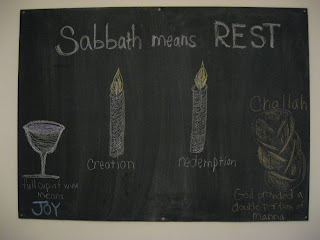 Sabbath means REST
Challah
Creation
redemption
full cup of wine
means
JOY
God provided a
double portion of
Manna